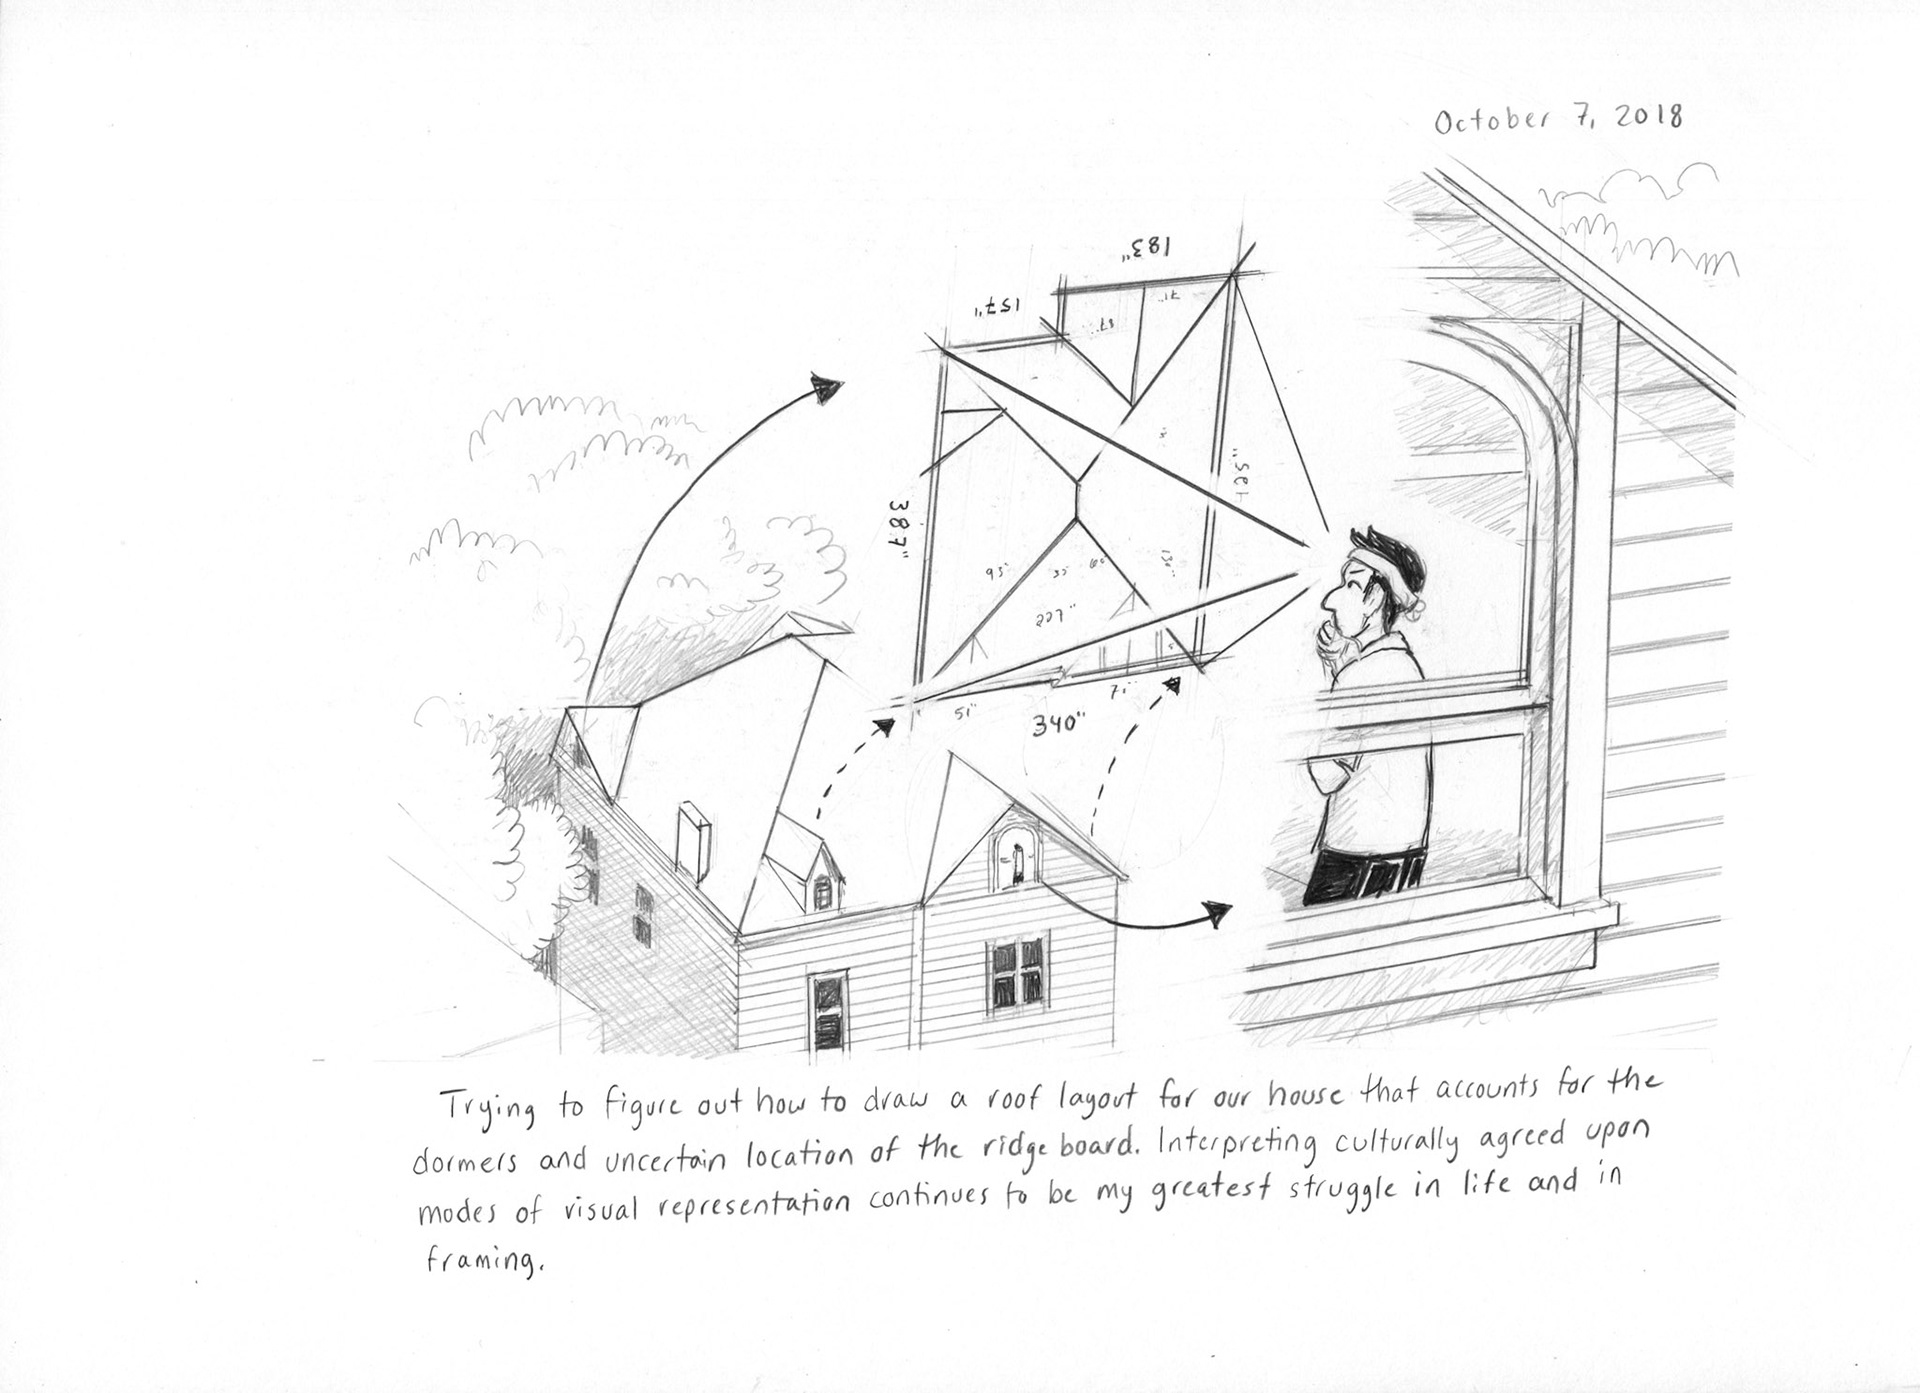 October 7, 2018
183"
157"
71"
87"
195"
387"
93"
35"
60"
136"
227"
51"
71"
340"
Trying to figure out how to draw a roof layout for our house that accounts for the
dormers and uncertain location of the ridge board. Interpreting culturally agreed upon
modes of visual representation continues to be my greatest struggle in life and in
framing.